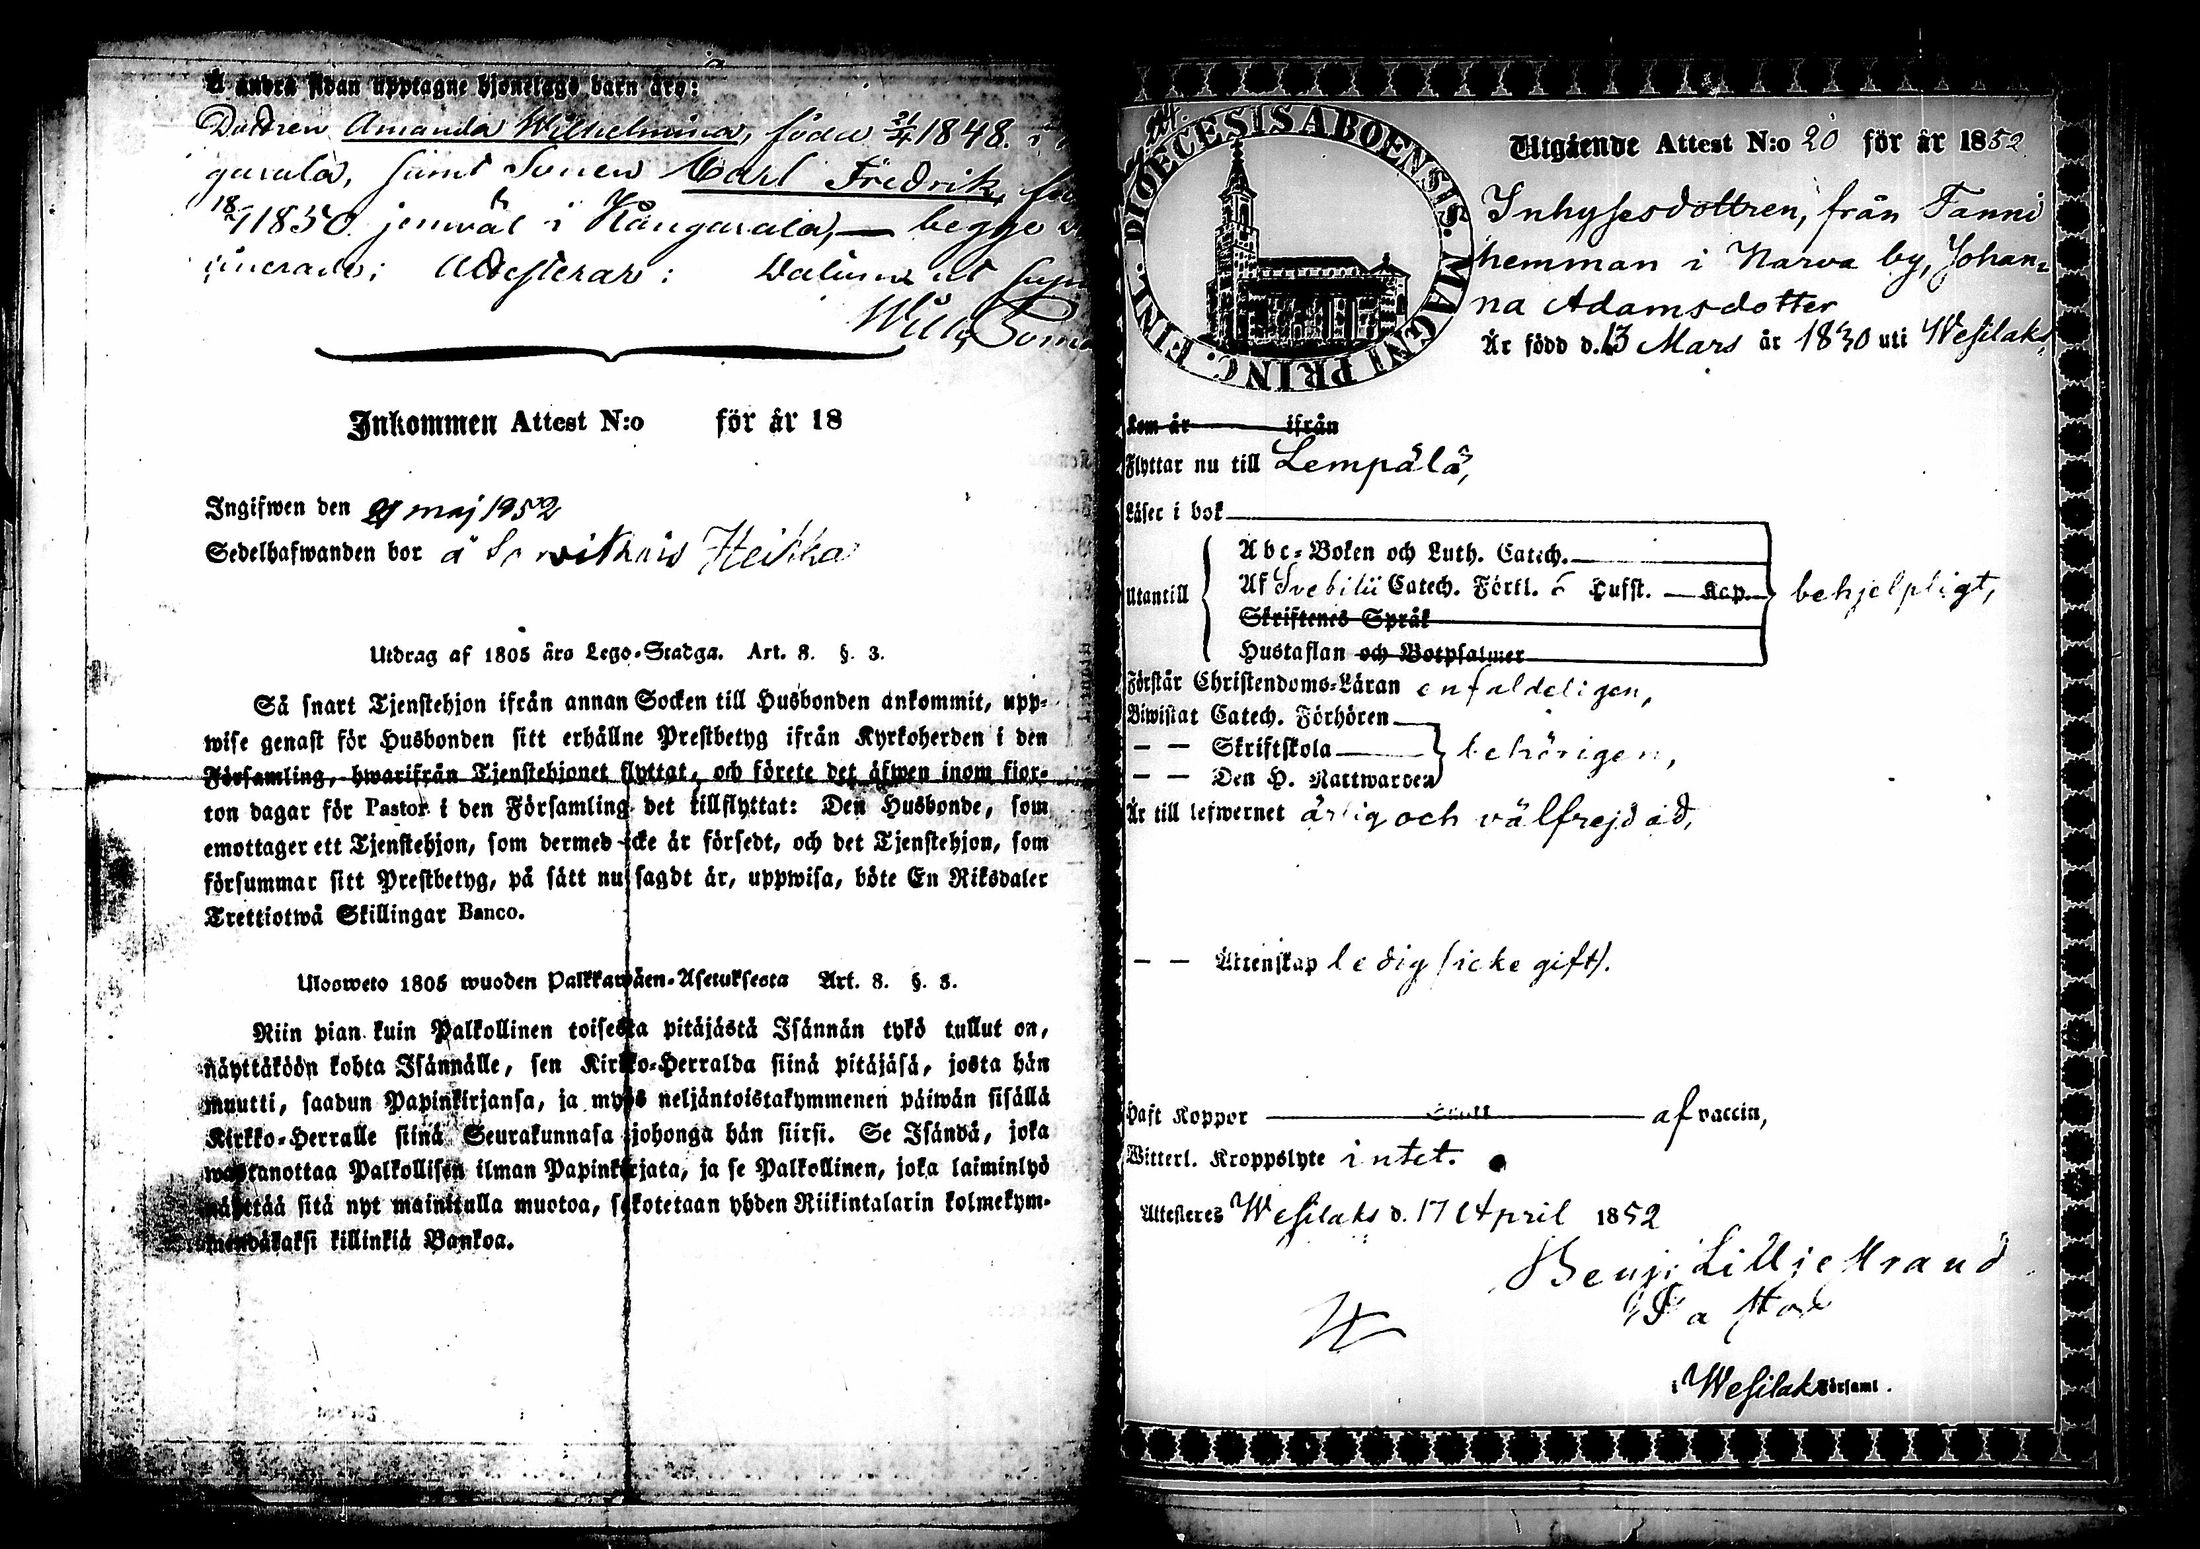 Å andra sidan upptagne hjonelags barn äro:
Dottren Amanda Wilhelmina, född 21/4 1848. i
garala, samt Sonen Carl Fredrik,
18/ 1850 jemväl i Kangasala, — begge
Attesterar: Datum ut
Wilh.
Inkommen Attest N:o för år 18
Ingifwen den 21 maj 1852
Sedelhafwanden bor å Heikka
Utdrag af 1805 års Lego-Stadga. Art. 8. §. 3.
Så snart Tjenstehjon ifrån annan Socken till Husbonden ankommit, upp-
wise genast för Husbonden sitt erhållne Prestbetyg ifrån Kyrkoherden i den
Församling, hwarifrån Tjenstehjonet flyttat, och förete det äfwen inom fjor-
ton dagar för Pastor i den Församling det tillflyttat: Den Husbonde, som
emottager ett Tjenstehjon, som dermed icke är försedt, och det Tjenstehjon, som
försummar sitt Prestbetyg, på sätt nu sagdt är, uppwisa, böte En Riksdaler
Trettiotwå Skillingar Banco.
Ulosweto 1805 wuoden Palkkawäen-Asetuksesta Art. 8. §. 3.
Niin pian kuin Palkollinen toisesta pitäjästä Isännän tykö tullut on,
näyttäköön kohta Isännälle, sen Kirkko-Herralda siinä pitäjäsä, josta hän
muutti, saadun Papinkirjansa, ja myös neljäntoistakymmenen päiwän sisällä
Kirkko-Herralle siinä Seurakunnasa johonga hän siirsi. Se Isändä, joka
wastanottaa Palkollisen ilman Papinkirjata, ja se Palkollinen, joka laiminlyö
näyttää sitä nyt mainitulla muotoa, sakotetaan yhden Riikintalarin kolmekym-
mendäkaksi killinkiä Bankoa.
DIOECESIS ABOENSIS. MAGNI PRINC. FINL.
Utgående Attest N:o 20 för år 1852
Inhysesdottren, från Tanni
hemman i Narva by, Johan-
na Adamsdotter
Är född d. 13 Mars år 1830 uti Wesilaks,
Kom år ifrån
Flyttar nu till Lempälä,
Läser i bok
Abc-Boken och Luth. Catech.
Utantill Af Svebilii Catech. Förkl. 6 Hufst. Kap. behjelpligt,
Skriftenes Språk
Hustaflan och Botpsalmer
Förstår Christendoms-Läran enfaldeligen,
Biwistat Catech. Förhören
— — Skriftskola behörigen,
— — Den H. Nattwarden
Är till lefwernet ärlig och välfrejdad,
— — Äktenskap ledig (icke gift).
Haft Koppor af vaccin,
Witterl. Kroppslyte intet.
Attesteres Wesilaks d. 17 April 1852
Benj. Lilljestrand
Pastor
i Wesilaks Församl.